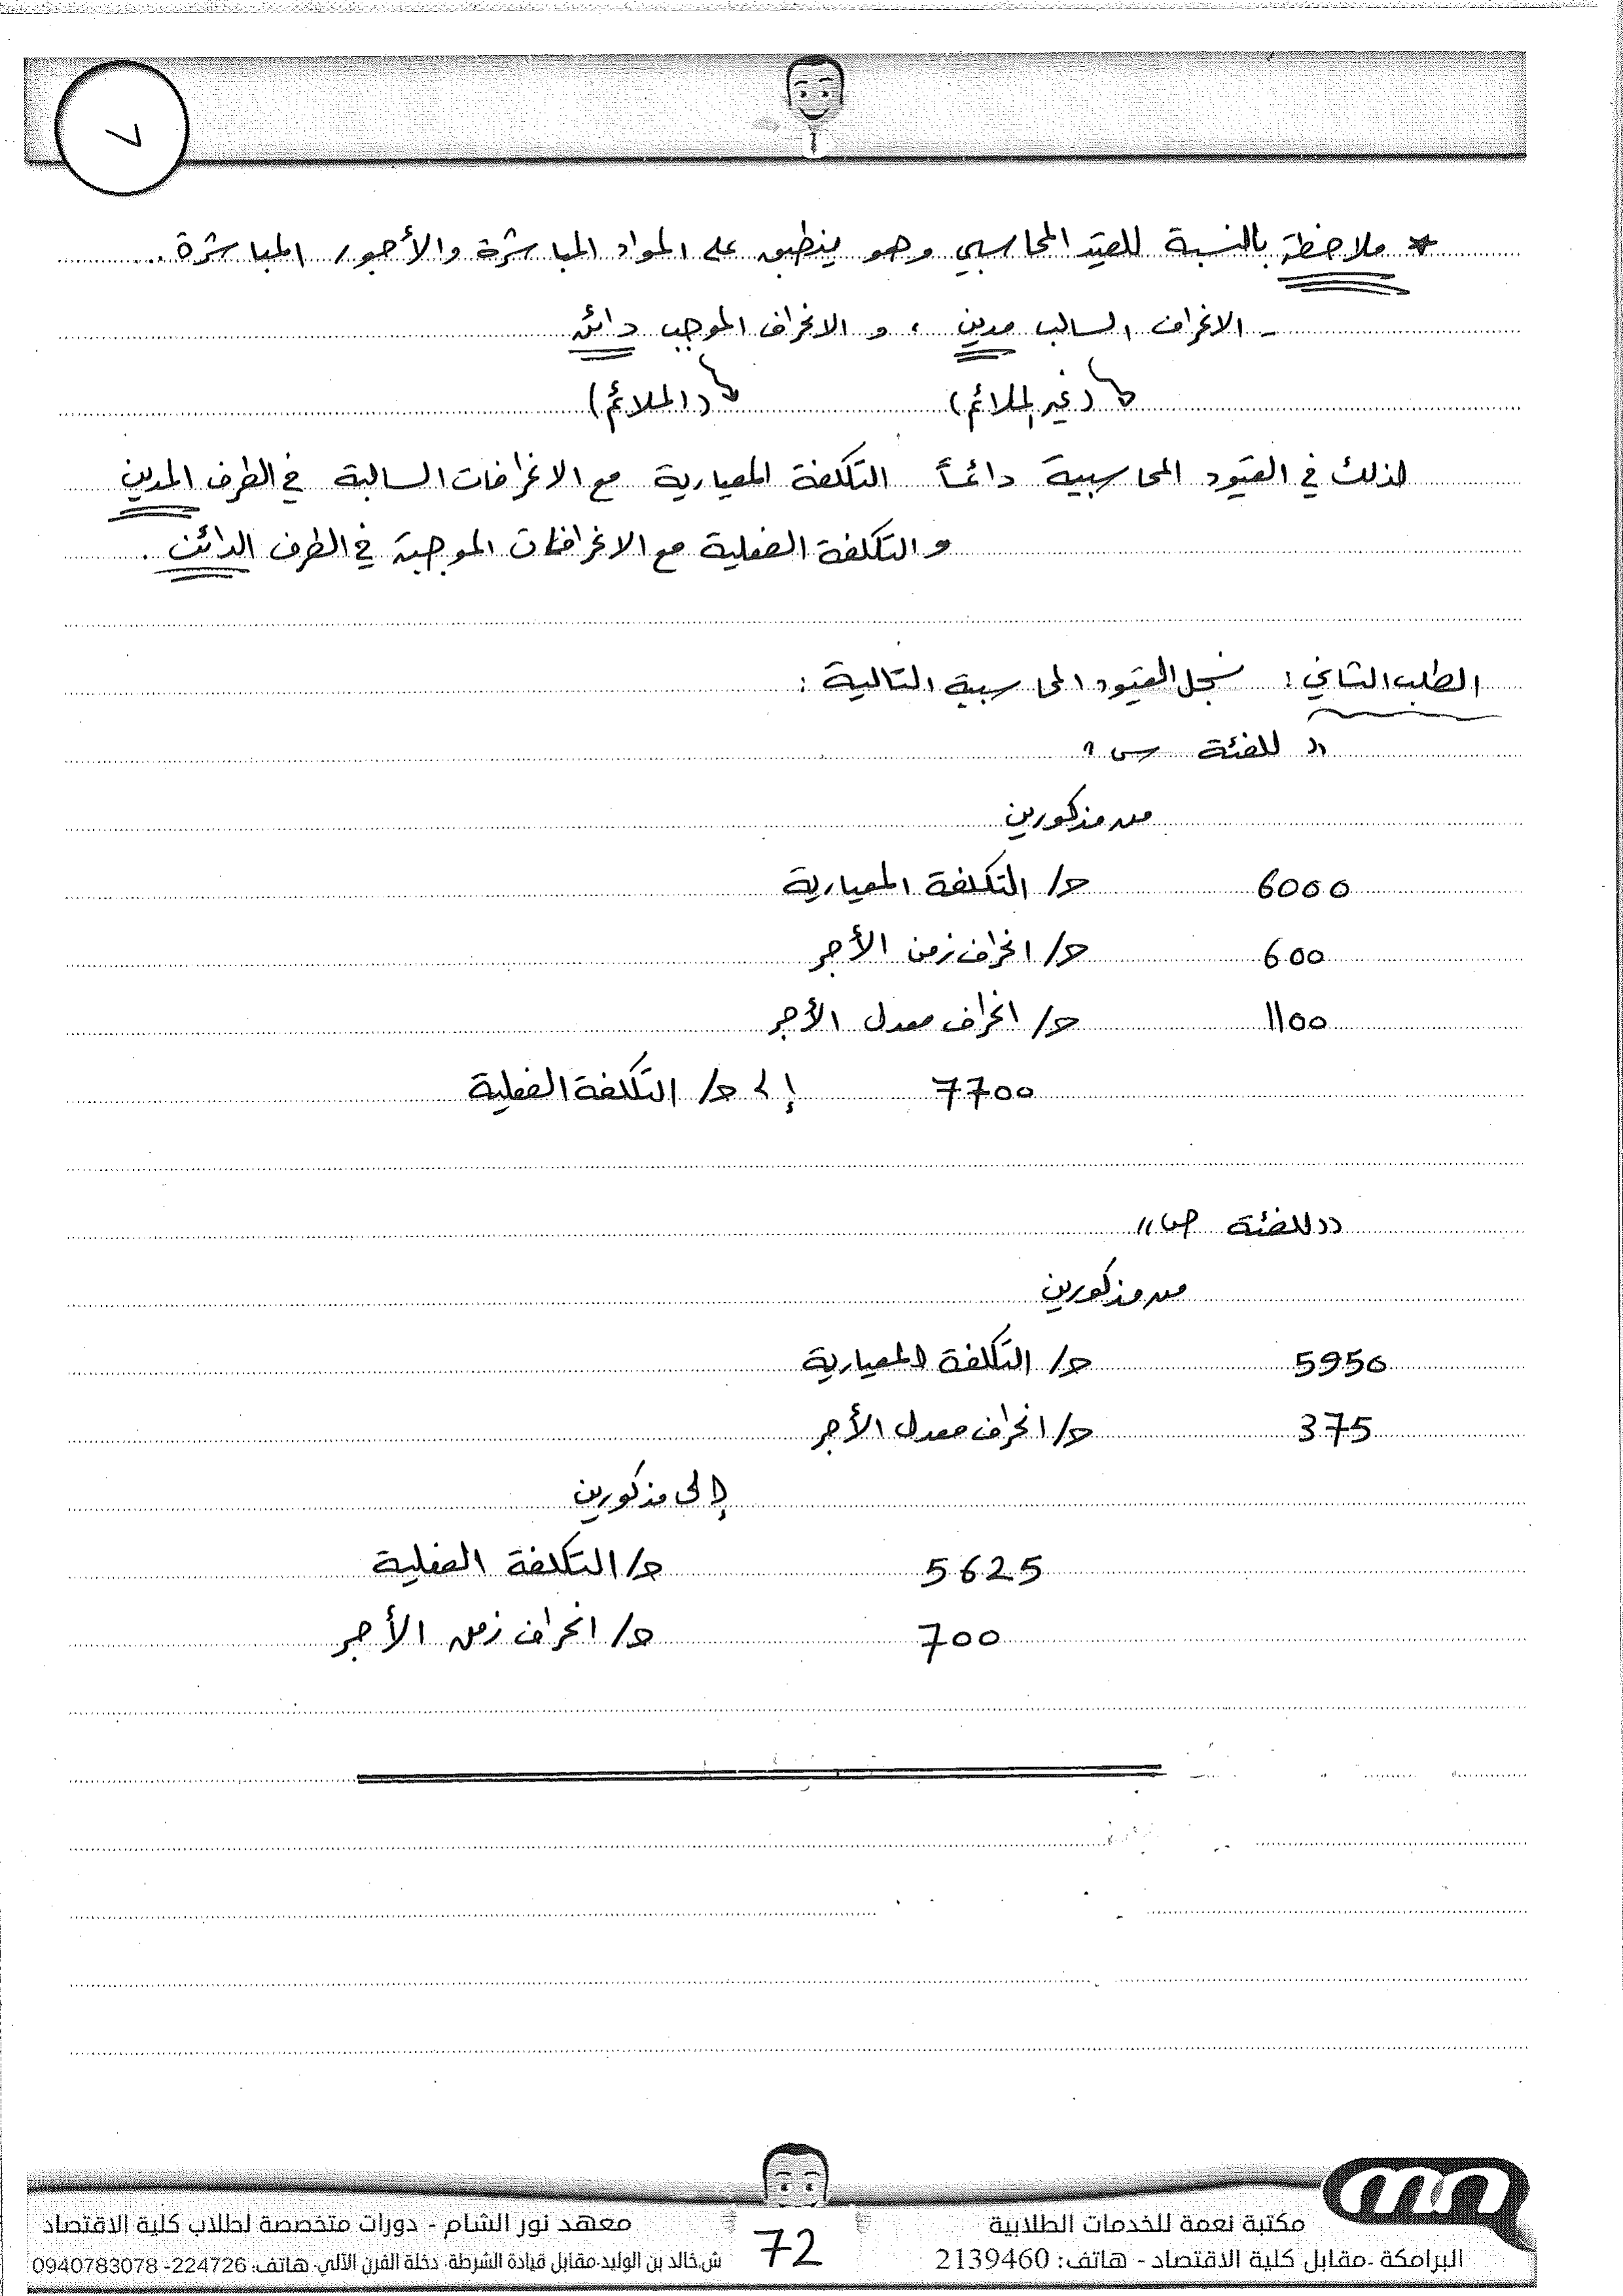 ٧
* ملاحظة بالنسبة للقيد المحاسبي وهو ينطبق على المواد المباشرة والأجور المباشرة..
- الانحراف السالب مدين ، و الانحراف الموجب دائن
(غير الملائم) (الملائم)
لذلك في القيود المحاسبية دائماً التكلفة المعيارية مع الانحرافات السالبة في الطرف المدين
و التكلفة الفعلية مع الانحرافات الموجبة في الطرف الدائن .
الطلب الثاني : نسجل القيود المحاسبية التالية :
" للفئة س "
من مذكورين
6000 ح/ التكلفة المعيارية
600 ح/ انحراف زمن الأجر
1100 ح/ انحراف معدل الأجر
7700 إلى ح/ التكلفة الفعلية
" للفئة ص "
من مذكورين
5950 ح/ التكلفة المعيارية
375 ح/ انحراف معدل الأجر
إلى مذكورين
5625 ح/ التكلفة الفعلية
700 ح/ انحراف زمن الأجر
مكتبة نعمة للخدمات الطلابية
البرامكة -مقابل كلية الاقتصاد - هاتف: 2139460
72
معهد نور الشام - دورات متخصصة لطلاب كلية الاقتصاد
ش.خالد بن الوليد-مقابل قيادة الشرطة- دخلة الفرن الآلي- هاتف: 224726- 0940783078